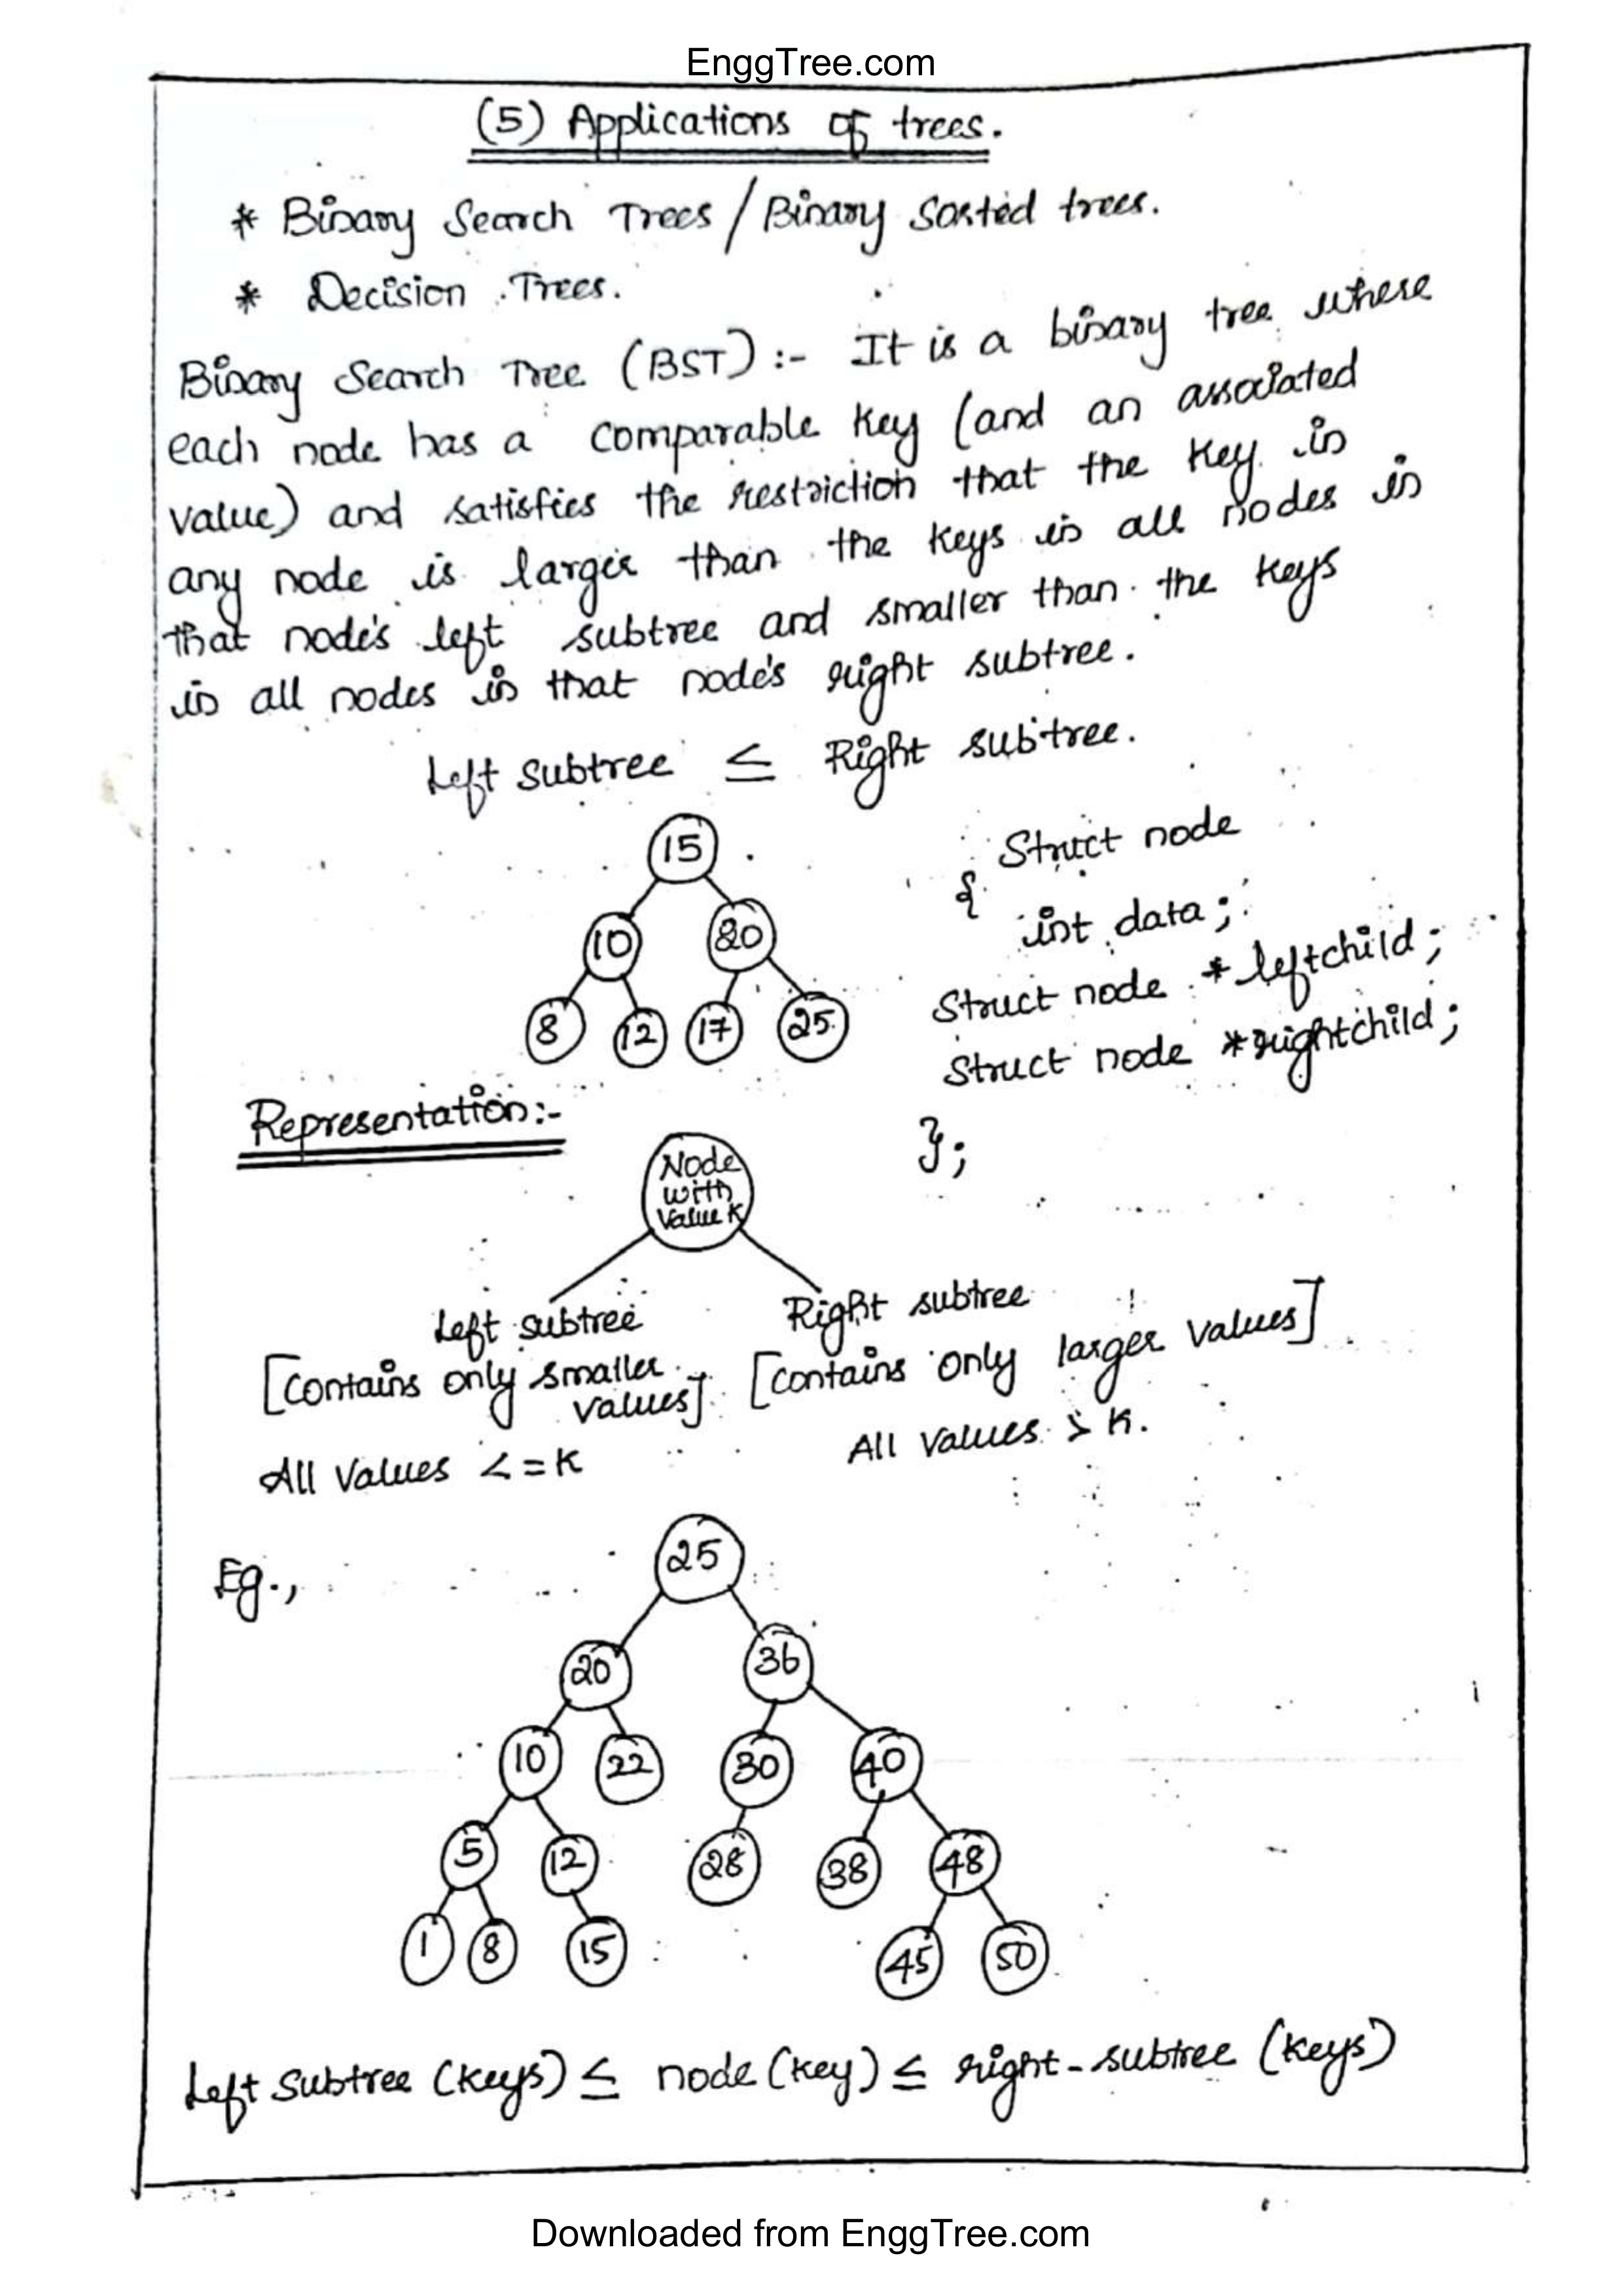 EnggTree.com
(5) Applications of trees.
* Binary Search Trees / Binary Sorted trees.
* Decision Trees.
Binary Search Tree (BST) :- It is a binary tree where
each node has a comparable key (and an associated
value) and satisfies the restriction that the key in
any node is larger than the keys in all nodes in
that node's left subtree and smaller than the keys
in all nodes in that node's right subtree.
Left subtree ≤ Right subtree.
15
10 20
8 12 17 25
Struct node
{
int data;
Struct node *leftchild;
Struct node *rightchild;
};
Representation:-
Node
with
Value K
Left subtree Right subtree
[Contains only smaller values] [Contains only larger values]
All Values <= K All Values > K.
Eg.,
25
20 36
10 22 30 40
5 12 28 38 48
1 8 15 45 50
Left Subtree (keys) ≤ node (key) ≤ right-subtree (keys)
Downloaded from EnggTree.com